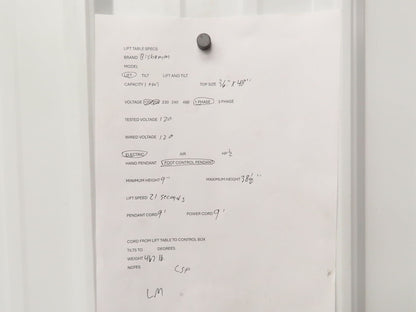 LIFT TABLE SPECS
BRAND Bishamon
MODEL
LIFT TILT LIFT AND TILT
CAPACITY TOP SIZE X 48"
VOLTAGE 230 240 480 1 PHASE 3 PHASE
TESTED VOLTAGE 120
WIRED VOLTAGE 120
ELECTRIC AIR HP 1/2
HAND PENDANT FOOT CONTROL PENDANT
MINIMUM HEIGHT 9" MAXIMUM HEIGHT
LIFT SPEED 21 seconds
PENDANT CORD 9' POWER CORD 9'
CORD FROM LIFT TABLE TO CONTROL BOX
TILTS TO DEGREES
WEIGHT 467 lb
NOTES CSP
LM